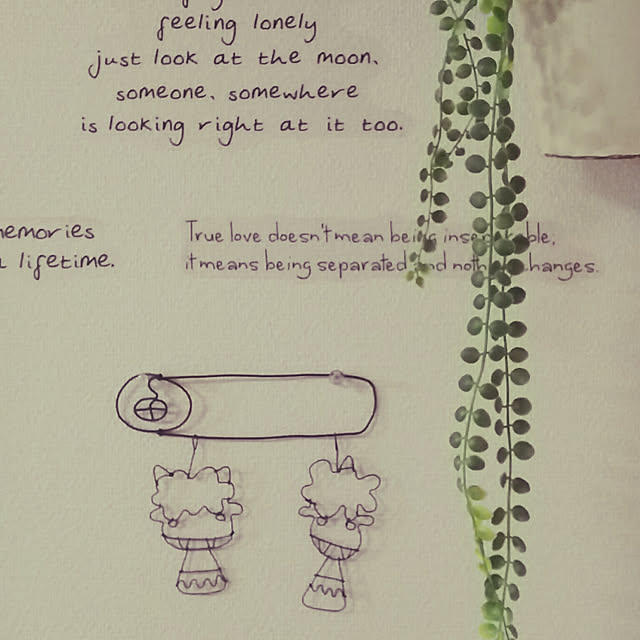 feeling lonely
just look at the moon.
someone, somewhere
is looking right at it too.
memories
lifetime.
True love doesn't mean being
it means being separated and